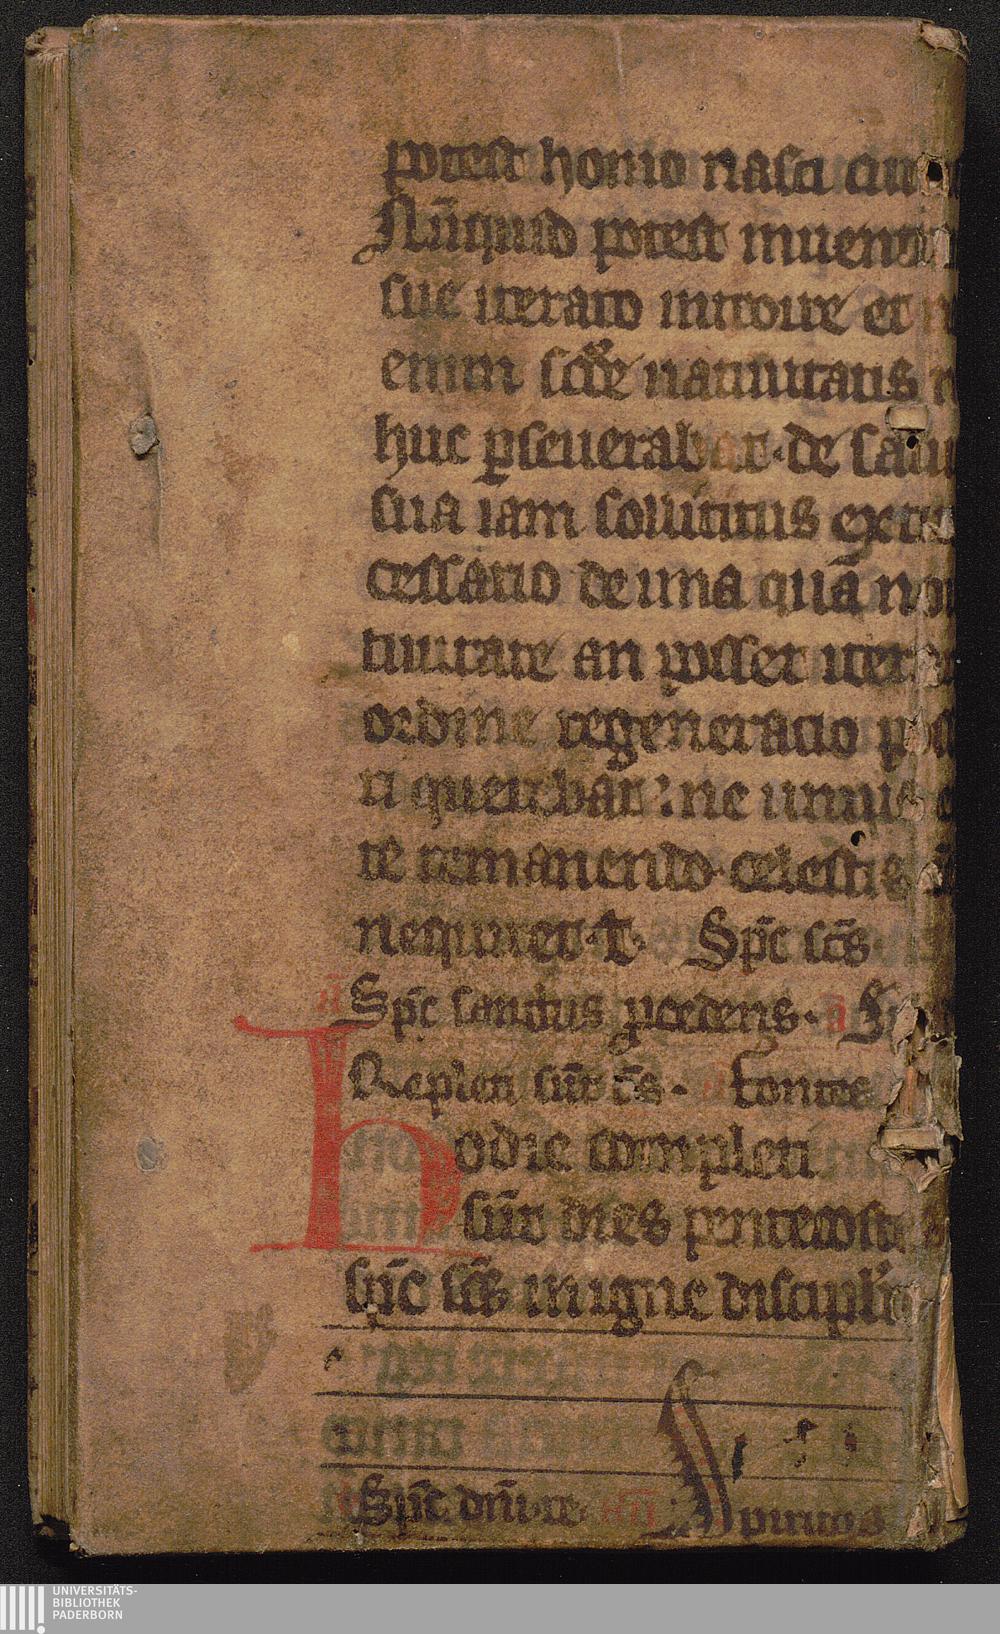 potest homo nasci cu
Nūquid potest in uentre
sue iterato introire et
enim scðe natiuitatis
huc ꝑseuerabat · de salu
sua iam sollicitus
cessario de una quā no
tiuitate an posset iter
ordine regeneracio pos
ri querebat : ne
te remanendo celestis
nequiret · T · Spc̄ sc̄s
Spc̄ sanctus ꝓcedens · a
Repleti sūt ōs · fontes
hodie completi
sūt dies pentecostes
sp̄c sc̄s in igne discipul'
Spc̄ dn̄i re an̄ Spiritus
UNIVERSITÄTS-
BIBLIOTHEK
PADERBORN